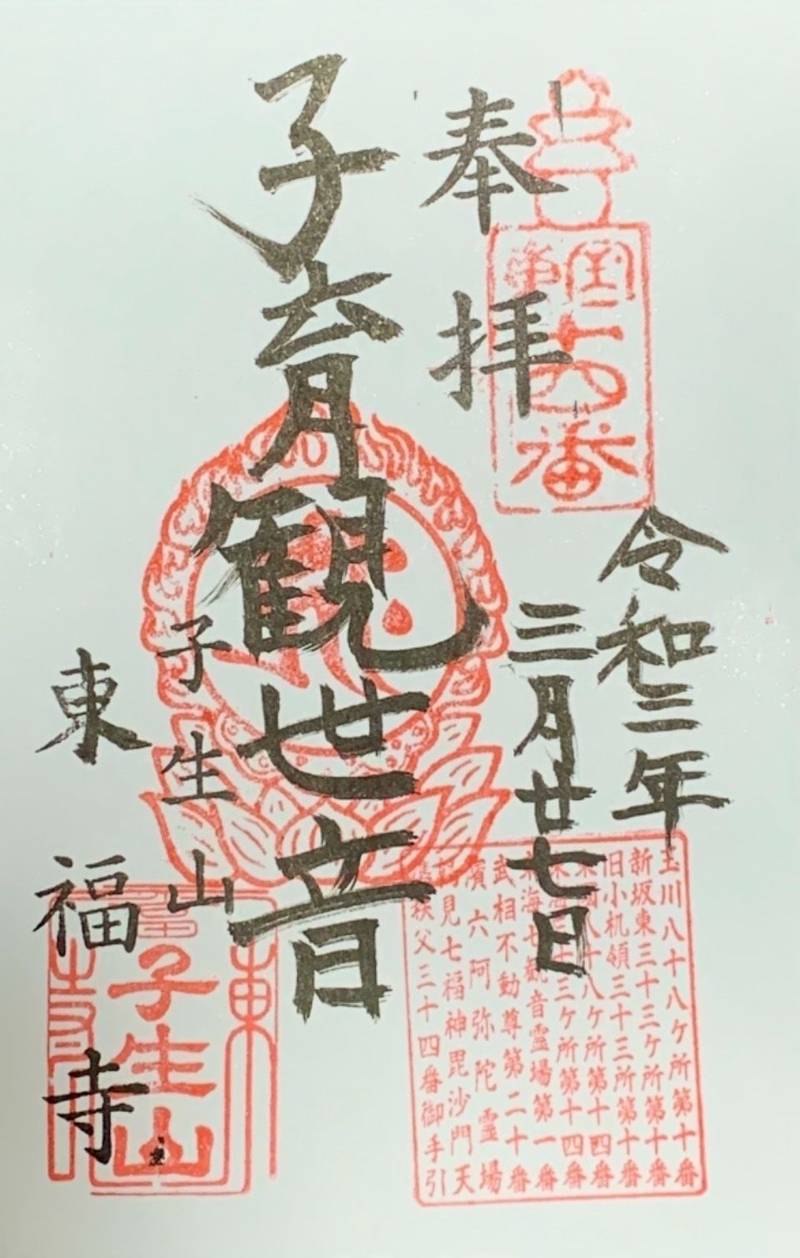 奉拝
第十四番
令和二年
三月廿七日
子育観世音
子生山
東福寺
玉川八十八ケ所第十番
新坂東三十三ケ所第十番
旧小机領三十三所第十番
八十八ケ所第十四番
十三ケ所第十四番
海七観音霊場第一番
武相不動尊第二十番
濱六阿弥陀霊場
見七福神毘沙門天
秩父三十四番御手引
東
子生山
寺